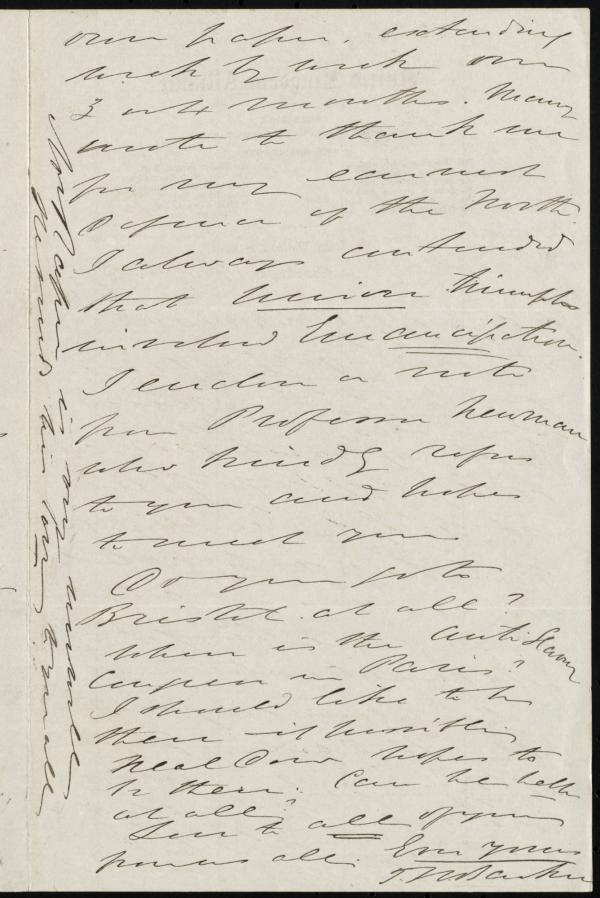 own paper. extending
week by week over
3 or 4 months. Many
wrote to thank me
for my earnest
defence of the North.
I always contended
that Union triumphs
involved Emancipation.
I enclose a note
from Professor Newman
who kindly refers
to you and hopes
to meet you
Do you go to
Bristol at all?
when is the Anti Slavery
Congress in Paris?
I should like to be
there if possible
Neal Dow hopes to
be there. Can he help
at all?
Love to all of you
from us all. Ever yours
is my
sends his love to you all